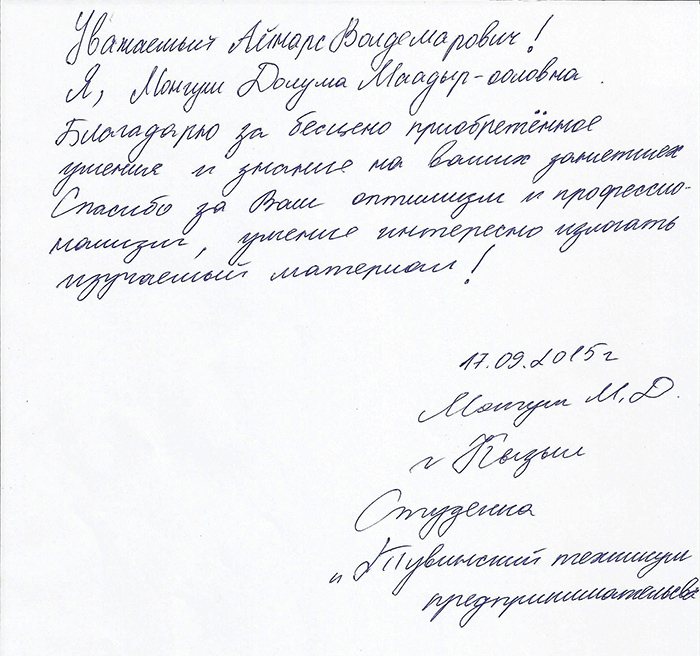 Уважаемый Айнарс Волдемарович!
Я, Монгуш Долума Маадыр-ооловна.
Благодарю за бесцено приобретённое
умения и знание на ваших занятиях
Спасибо за Ваш оптимизм и профессио-
нализм, умение интересно излогать
изучаемый материал!
17.09.2015г
Монгуш М.Д.
г Кызыл
Студенка
"Тувинский техникум
предпринимательства